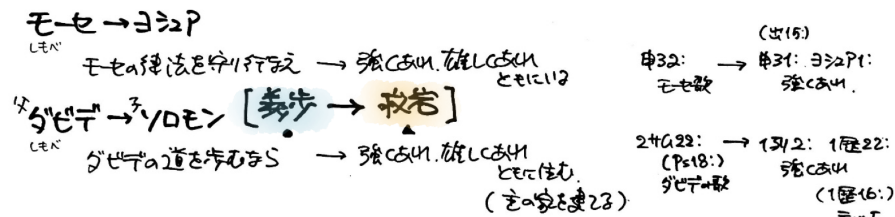 モーセ → ヨシュア
しもべ
モーセの律法を守り行なえ → 強くあれ.雄しくあれ
ともにいる
父ダビデ → 子ソロモン [義歩 → 救岩]
しもべ
ダビデの道を歩むなら → 強くあれ.雄しくあれ
ともに住む.
(主の家を建てる)
(出15:)
申32: → 申31: ヨシュア1:
モーセ歌 強くあれ.
2サム22: → 1列2: 1歴22:
(Ps18:) 強くあれ
ダビデの歌
(1歴16:)